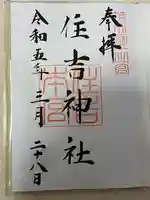 奉拝
住吉神社
令和五年 三月 二十八日